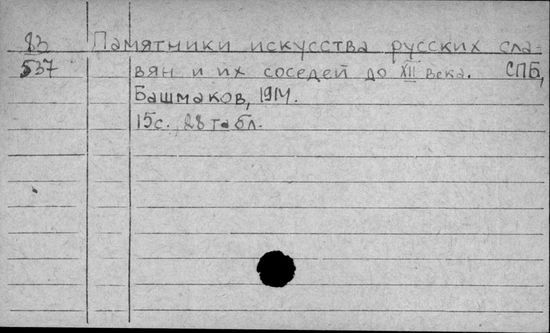 83 Памятники искусства русских сла-
537 вян и их соседей до XII века. СПБ,
Башмаков, 191
15с., 28 табл.